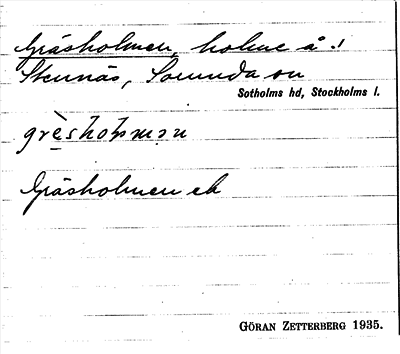 Gräsholmen, holme å!
Stennäs, Sorunda sn
Sotholms hd, Stockholms l.
grè̱sholmən
Gräsholmen ek
GÖRAN ZETTERBERG 1935.